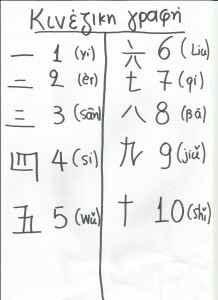 Κινέζικη γραφή
一 1 (yi)
二 2 (èr)
三 3 (sān)
四 4 (si)
五 5 (wǔ)
六 6 (Liu)
七 7 (qi)
八 8 (bā)
九 9 (jiǔ)
十 10 (shǐ)